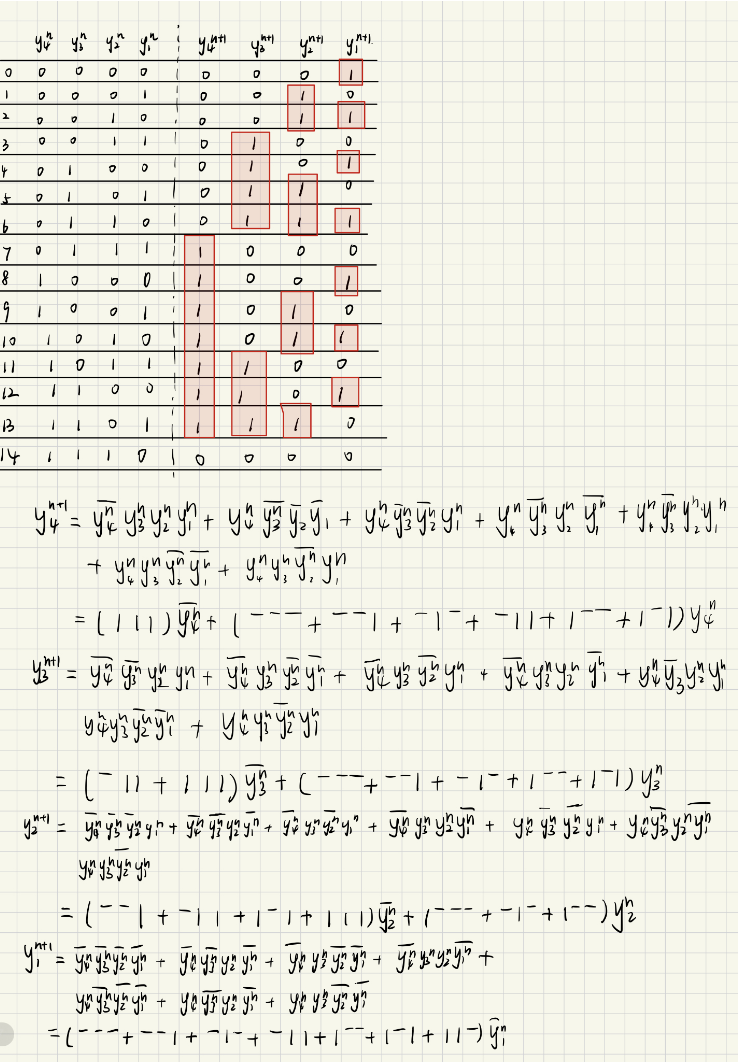 y₄ⁿ y₃ⁿ y₂ⁿ y₁ⁿ y₄ⁿ⁺¹ y₃ⁿ⁺¹ y₂ⁿ⁺¹ y₁ⁿ⁺¹
0 0 0 0 0 0 0 0 1
1 0 0 0 1 0 0 1 0
2 0 0 1 0 0 0 1 1
3 0 0 1 1 0 1 0 0
4 0 1 0 0 0 1 0 1
5 0 1 0 1 0 1 1 0
6 0 1 1 0 0 1 1 1
7 0 1 1 1 1 0 0 0
8 1 0 0 0 1 0 0 1
9 1 0 0 1 1 0 1 0
10 1 0 1 0 1 0 1 1
11 1 0 1 1 1 1 0 0
12 1 1 0 0 1 1 0 1
13 1 1 0 1 1 1 1 0
14 1 1 1 0 0 0 0 0
y₄ⁿ⁺¹ = y̅₄ⁿ y₃ⁿ y₂ⁿ y₁ⁿ + y₄ⁿ y̅₃ⁿ y̅₂ y̅₁ + y₄ⁿ y̅₃ⁿ y̅₂ⁿ y₁ⁿ + y₄ⁿ y̅₃ⁿ y₂ⁿ y̅₁ⁿ + y₄ⁿ y̅₃ⁿ y₂ⁿ y₁ⁿ
+ y₄ⁿ y₃ⁿ y̅₂ⁿ y̅₁ⁿ + y₄ⁿ y₃ⁿ y̅₂ⁿ y₁ⁿ
= (111) y̅₄ⁿ + (‾‾‾ + ‾‾1 + ‾1‾ + ‾11 + 1‾‾ + 1‾1) y₄ⁿ
y₃ⁿ⁺¹ = y̅₄ⁿ y̅₃ⁿ y₂ⁿ y₁ⁿ + y̅₄ⁿ y₃ⁿ y̅₂ⁿ y̅₁ⁿ + y̅₄ⁿ y₃ⁿ y̅₂ⁿ y₁ⁿ + y̅₄ⁿ y₃ⁿ y₂ⁿ y̅₁ⁿ + y₄ⁿ y̅₃ y₂ⁿ y₁ⁿ
y₄ⁿ y₃ⁿ y̅₂ⁿ y̅₁ⁿ + y₄ⁿ y₃ⁿ y̅₂ⁿ y₁ⁿ
= (‾11 + 111) y̅₃ⁿ + (‾‾‾ + ‾‾1 + ‾1‾ + 1‾‾ + 1‾1) y₃ⁿ
y₂ⁿ⁺¹ = y̅₄ⁿ y̅₃ⁿ y̅₂ⁿ y₁ⁿ + y̅₄ⁿ y̅₃ⁿ y₂ⁿ y̅₁ⁿ + y̅₄ⁿ y₃ⁿ y̅₂ⁿ y₁ⁿ + y̅₄ⁿ y₃ⁿ y₂ⁿ y̅₁ⁿ + y₄ⁿ y̅₃ⁿ y̅₂ⁿ y₁ⁿ + y₄ⁿ y̅₃ⁿ y₂ⁿ y̅₁ⁿ
y₄ⁿ y₃ⁿ y̅₂ⁿ y₁ⁿ
= (‾‾1 + ‾11 + 1‾1 + 111) y̅₂ⁿ + (‾‾‾ + ‾1‾ + 1‾‾) y₂ⁿ
y₁ⁿ⁺¹ = y̅₄ⁿ y̅₃ⁿ y̅₂ⁿ y̅₁ⁿ + y̅₄ⁿ y̅₃ⁿ y₂ⁿ y̅₁ⁿ + y̅₄ⁿ y₃ⁿ y̅₂ⁿ y̅₁ⁿ + y̅₄ⁿ y₃ⁿ y₂ⁿ y̅₁ⁿ +
y₄ⁿ y̅₃ⁿ y̅₂ⁿ y̅₁ⁿ + y₄ⁿ y̅₃ⁿ y₂ⁿ y̅₁ⁿ + y₄ⁿ y₃ⁿ y̅₂ⁿ y̅₁ⁿ
= (‾‾‾ + ‾‾1 + ‾1‾ + ‾11 + 1‾‾ + 1‾1 + 11‾) y̅₁ⁿ